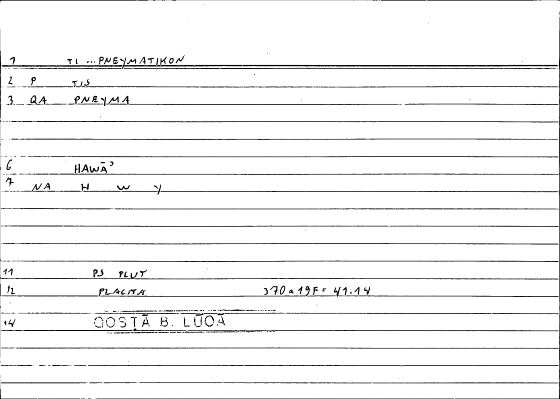 1 TI ...PNEYMATIKON
2 P TIS
3 QA PNEYMA
6 HAWĀʾ
7 NA H W Y
11 PS PLUT
12 PLACITA 370a19F = 41.14
14 QOSṬĀ B. LŪQĀ